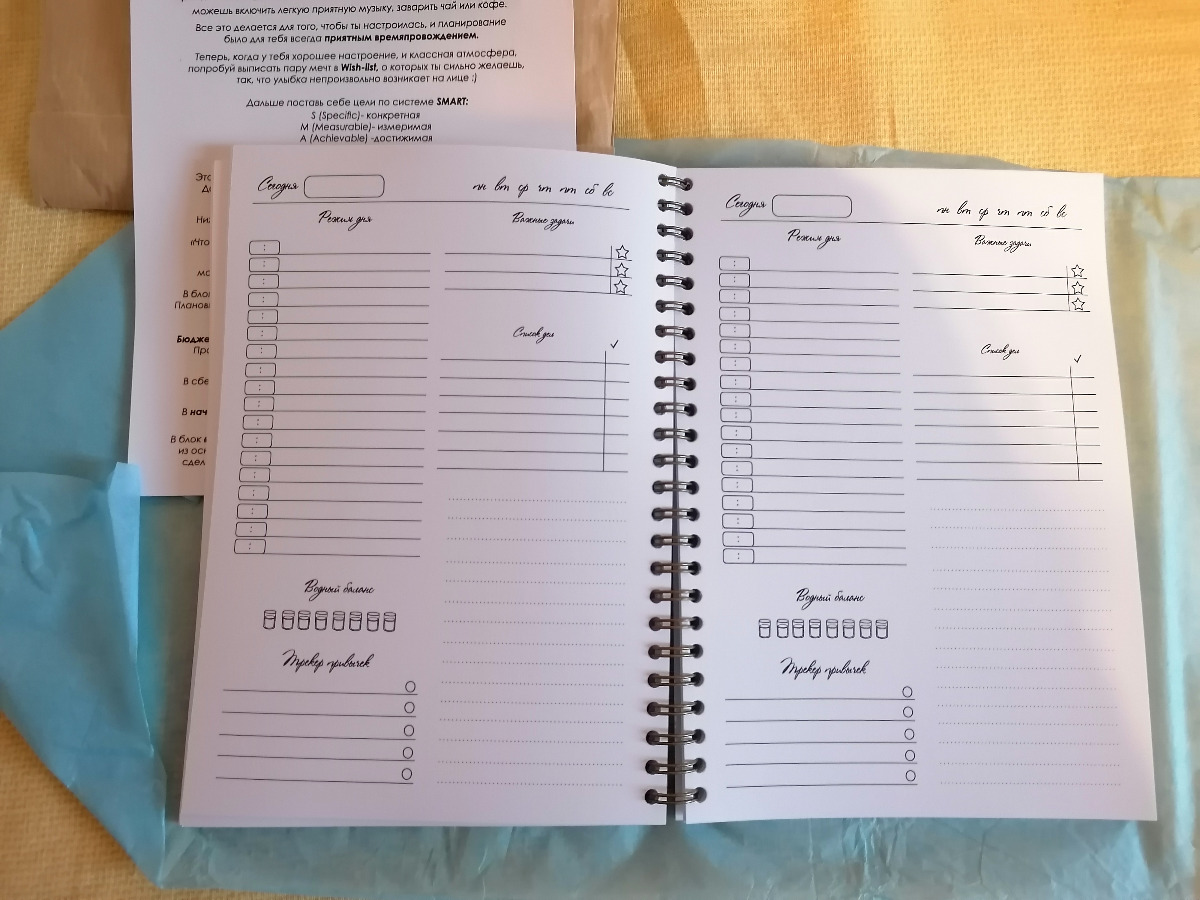 можешь включить легкую приятную музыку, заварить чай или кофе.
Все это делается для того, чтобы ты настроилась, и планирование
было для тебя всегда приятным времяпровождением.
Теперь, когда у тебя хорошее настроение, и классная атмосфера,
попробуй выписать пару мечт в Wish-list, о которых ты сильно желаешь,
так, что улыбка непроизвольно возникает на лице :)
Дальше поставь себе цели по системе SMART:
S (Specific)- конкретная
M (Measurable)- измеримая
A (Achievable) -достижимая
В бло
Планов
Бюдже
В сбе
В нач
В блок
из
Сегодня
пн вт ср чт пт сб вс
Режим дня
Важные задачи
Список дел
Водный баланс
Трекер привычек
Сегодня
пн вт ср чт пт сб вс
Режим дня
Важные задачи
Список дел
Водный баланс
Трекер привычек